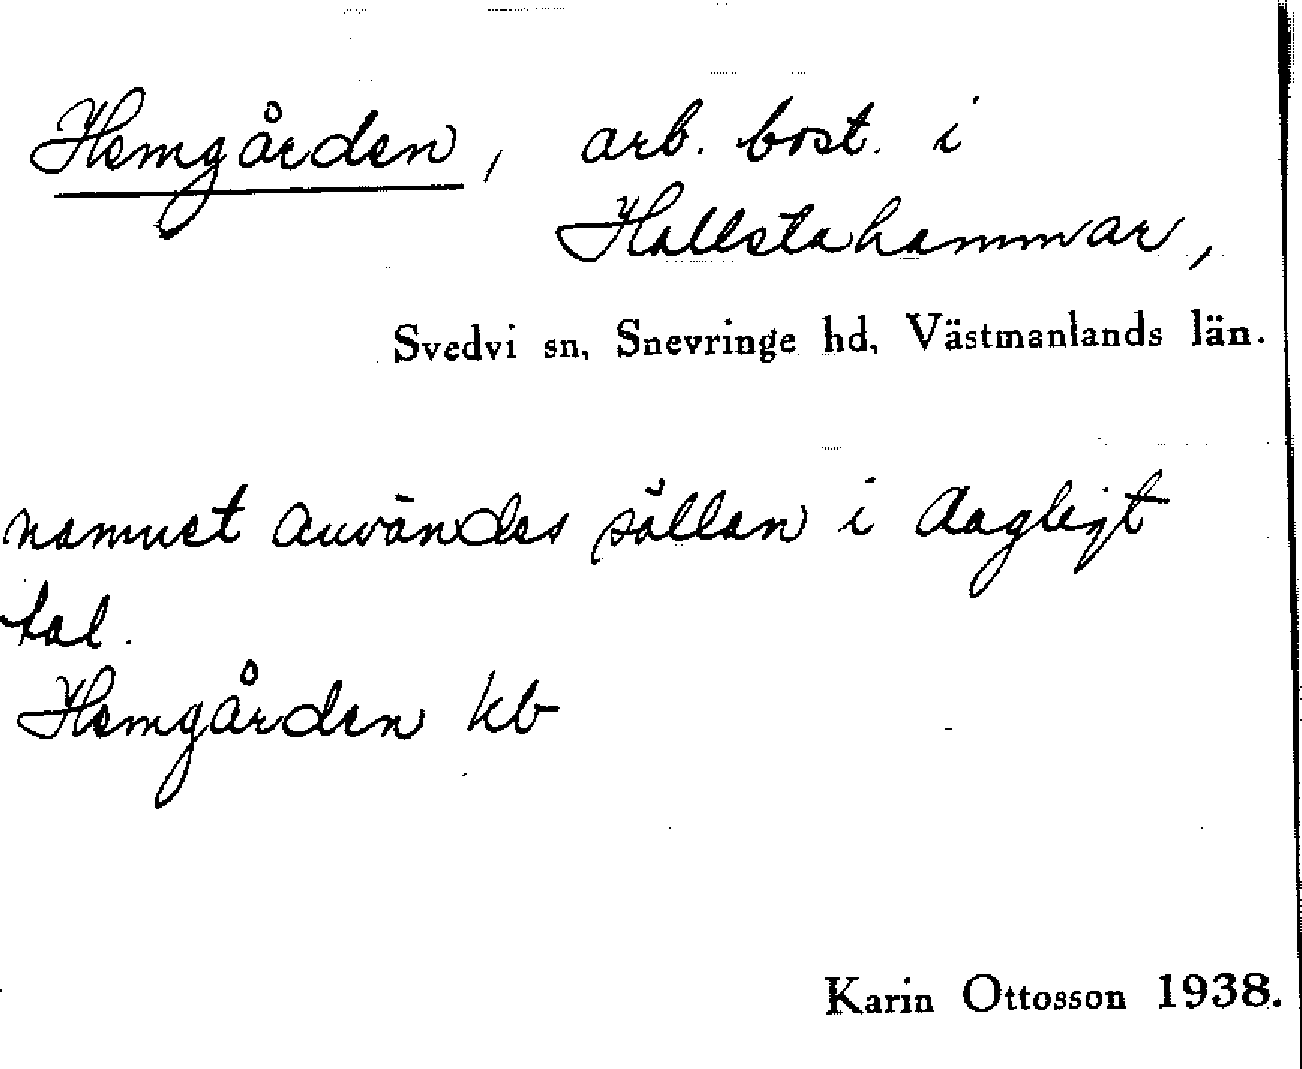 Hemgården, arb. bost. i
Hallstahammar,
Svedvi sn, Snevringe hd, Västmanlands län.
namnet användes sällan i dagligt
tal.
Hemgården kb
Karin Ottosson 1938.